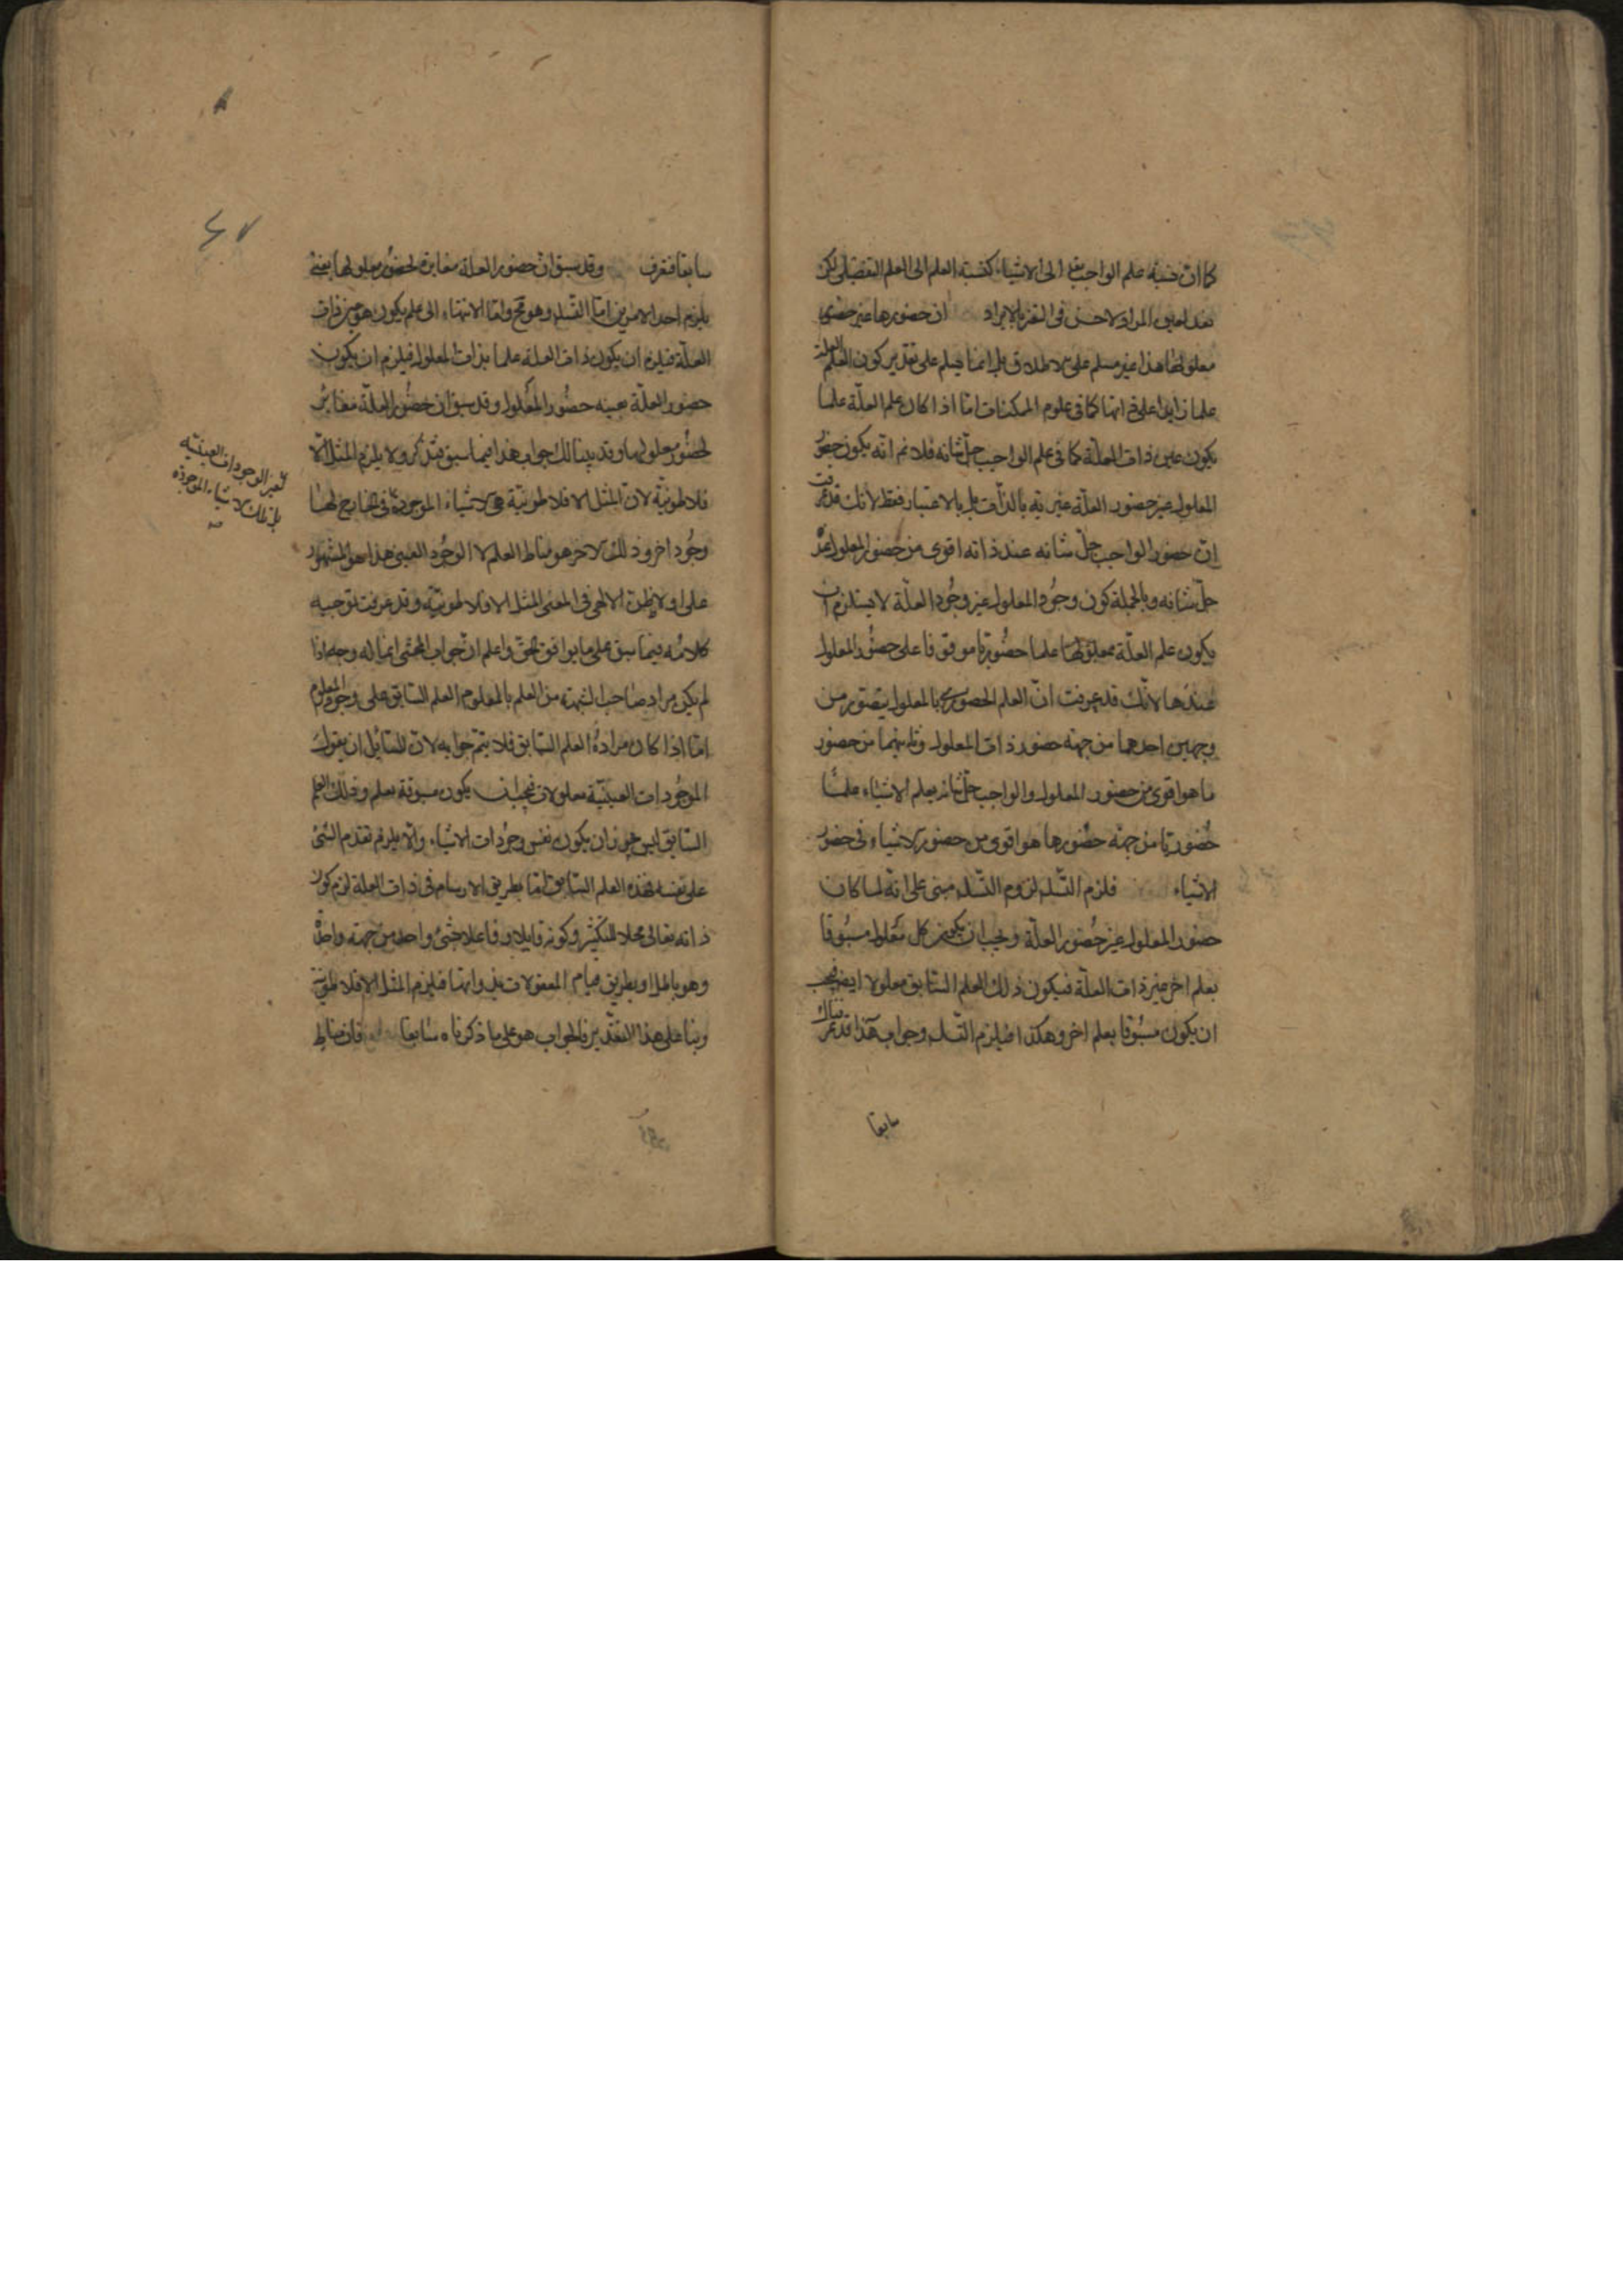 كما ان نسبة علم الواجب تع الى الاشياء كنسبة العلم الى العلم التفصيلى لكن
بعد تعيين المراد لاحسن فى التعبير بالايراد ان حضورها عين حضور
معلولها هذا غير مسلم على الاطلاق بل انما يسلم على تقدير كون العلم العلة
علما زايدا على ذاتها كما فى علوم الممكنات اما اذا كان علم العلة علما
يكون عين ذات العلة كما فى علم الواجب جل شانه فلا نم انه يكون حضور
المعلول غير حضور العلة غيرية بالذات بل بالاعتبار فقط لانك قد عرفت
ان حضور الواجب جل شانه عند ذاته اقوى من حضور المعلول عنده
جل شانه وبالجملة كون وجود المعلول غير وجود العلة لا يستلزم ان
يكون علم العلة بمعلولها علما حضوريا موقوفا على حضور المعلول
عندها لانك قد عرفت ان العلم الحضورى بالمعلول يتصور من
وجهين احدهما من جهة حضور ذات المعلول وثانيهما من حضور
ما هو اقوى من حضور المعلول والواجب جل شانه يعلم الاشياء علما
حضوريا من جهة حضورها هو اقوى من حضور الاشياء فى حضور
الاشياء فلزم التسلسل لزوم التسلسل مبنى على انه لما كان
حضور المعلول غير حضور العلة ويجب ان يكون كل معلول مسبوقا
بعلم اخر غير ذات العلة فيكون ذلك العلم السابق معلولا ايضا فيجب
ان يكون مسبوقا بعلم اخر وهكذا فيلزم التسلسل وجواب هذا قد عرفت
سابقا
سابقا فتعرف وقد سبق ان حضور العلة مغايرة لحضور معلولها يعنى
يلزم احد الامرين اما التسلسل وهو مح واما الانتهاء الى علم يكون هو عين ذات
العلة فيلزم ان يكون ذات العلة علما بذات المعلول فيلزم ان يكون
حضور العلة بعينه حضور المعلول وقد سبق ان حضور العلة مغاير
لحضور معلولها وقد بينا لك جواب هذا فيما سبق فتذكر ولا يلزم المثل الا
فلاطونية لان المثل الافلاطونية هى الاشياء الموجودة فى الخارج لها
وجود اخر وذلك الاخر هو مناط العلم لا الوجود العينى هذا هو المشهور
على افلاطن الالهى فى المعنى المثل الافلاطونية وقد عرفت توجيه
كلامه فيما سبق على ما يوافق الحق واعلم ان جواب المحشى انما له وجه اذا
لم يكن مراد صاحب الشبهة من العلم بالمعلوم العلم السابق على وجود المعلوم
اما اذا كان مراده العلم السابق فلا يتم جوابه لان للسائل ان يقول
الموجودات العينية معلولات فيجب ان يكون مسبوقة بعلم وذلك العلم
السابق ليس يجوز ان يكون نفس وجودات الاشياء والا يلزم تقدم الشئ
على نفسه فهذه العلم السابق اما بطريق الارتسام فى ذات العلة لزم كون
ذاته تعالى محلا للتكثر وكونه قابلا وفاعلا لشئ واحد من جهة واحدة
وهو باطل او بطريق قيام المعقولات بذواتها فيلزم المثل الافلاطونية
وبنا على هذا التقدير فالجواب هو على ما ذكرناه سابقا فان مناط
لغير الوجودات العينية
بل تلك الاشياء الموجودة